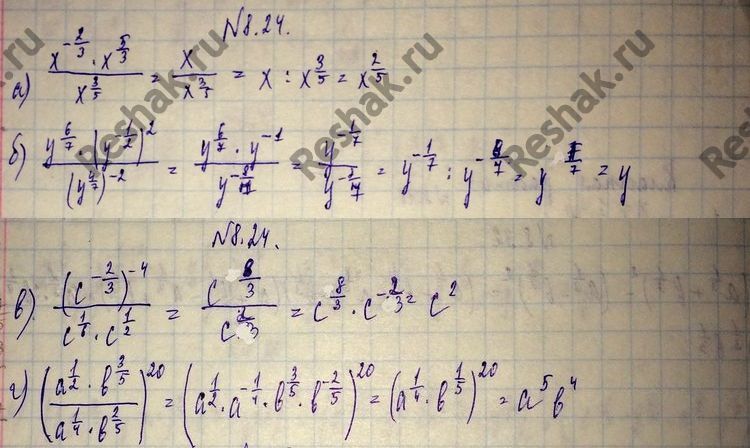 N8.24.
а) x^{-2/3} · x^{5/3} / x^{3/5} = x / x^{3/5} = x : x^{3/5} = x^{2/5}
б) y^{6/7} · (y^{-1/2})^2 / (y^{4/7})^{-2} = y^{6/7} · y^{-1} / y^{-8/7} = y^{-1/7} / y = y^{-1/7} : y^{-8/7} = y^{7/7} = y
N8.24.
в) (c^{-2/3})^{-4} / c^{1/6} · c^{1/2} = c^{8/3} / c^{2/3} = c^{8/3} · c^{-2/3} = c^2
г) (a^{1/2} · b^{3/5} / a^{1/4} · b^{2/5})^{20} = (a^{1/2} · a^{-1/4} · b^{3/5} · b^{-2/5})^{20} = (a^{1/4} · b^{1/5})^{20} = a^5 b^4
Reshak.ru
Reshak.ru
Reshak.ru